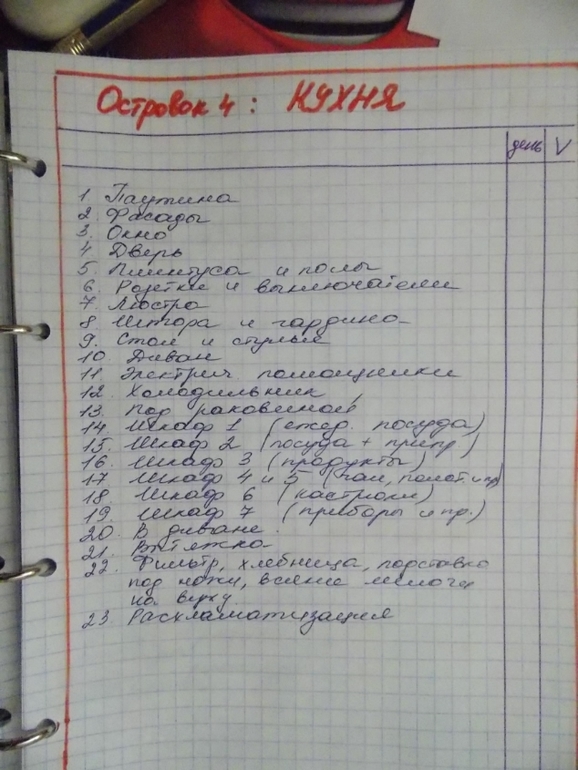 Островок 4: КУХНЯ
день V
1 Паутина
2 Фасады
3. Окно
4 Дверь
5. Плинтуса и полы
6 Розетки и выключатели
7. Люстра
8 Штора и гардина
9. Стол и стулья
10. Диван
11 Электрич. помощники
12. Холодильник
13. Под раковиной
14. Шкаф 1 (ежед. посуда)
15. Шкаф 2 (посуда + припр)
16. Шкаф 3 (продукты)
17 Шкаф 4 и 5 (полот. и пр)
18. Шкаф 6 (кастрюли)
19. Шкаф 7 (приборы и пр.)
20. В диване.
21. Вытяжка
22. Фильтр, хлебница, подставка
под ножи, всякие мелочи
на верху.
23 Расхламатизация